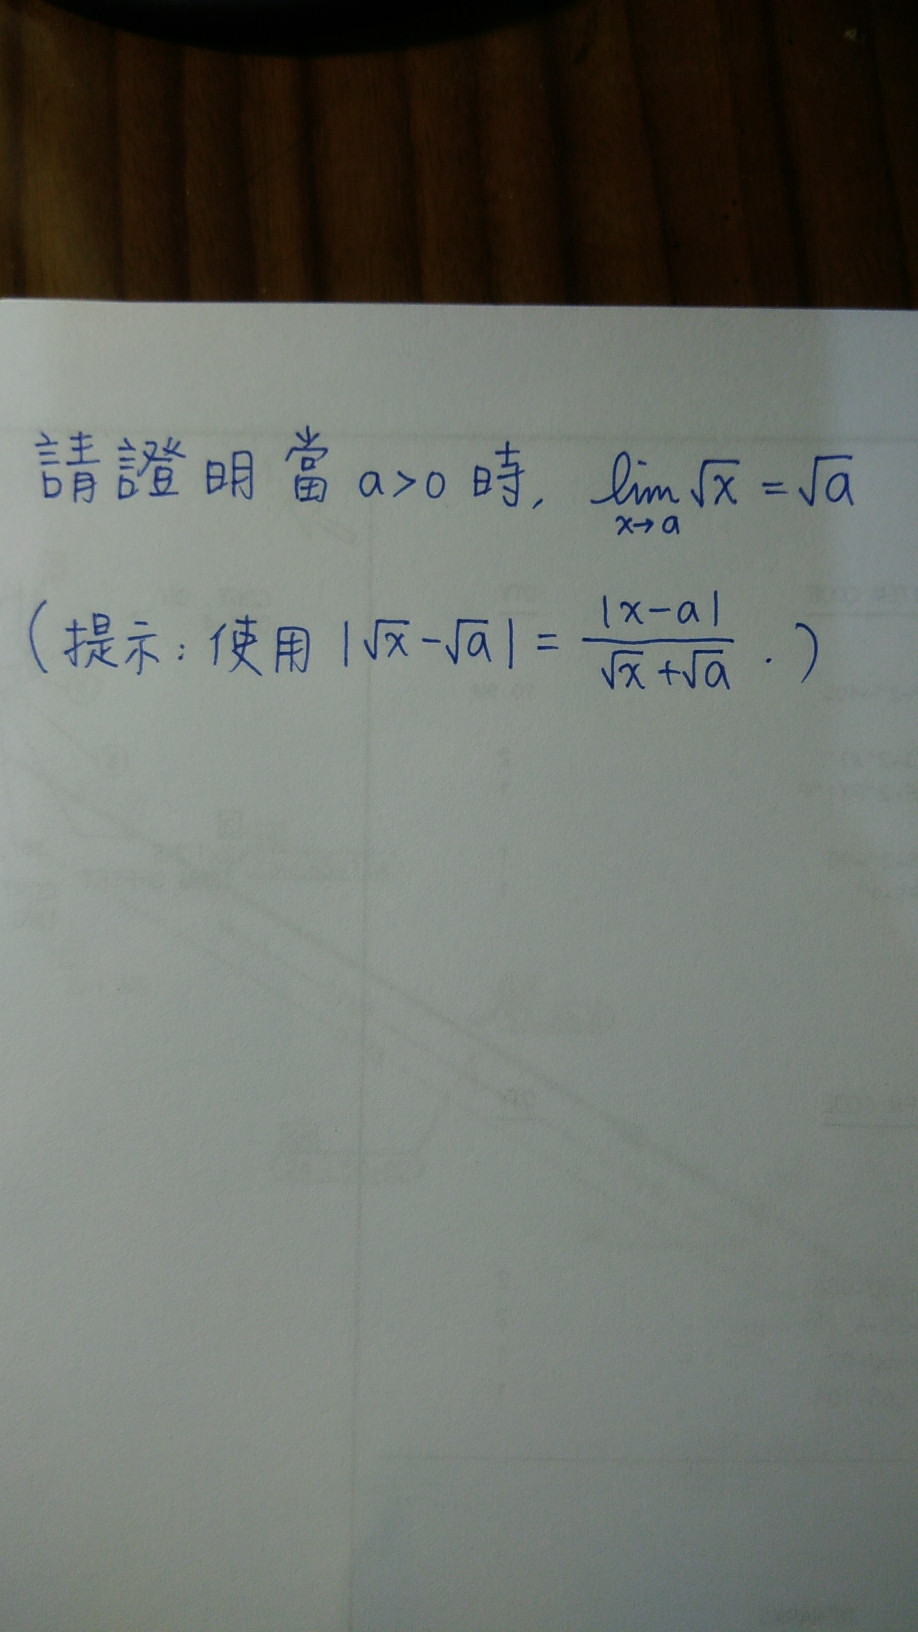 請證明當 a>0 時, lim √x = √a
x→a
(提示: 使用 |√x-√a| = |x-a| / (√x+√a) .)